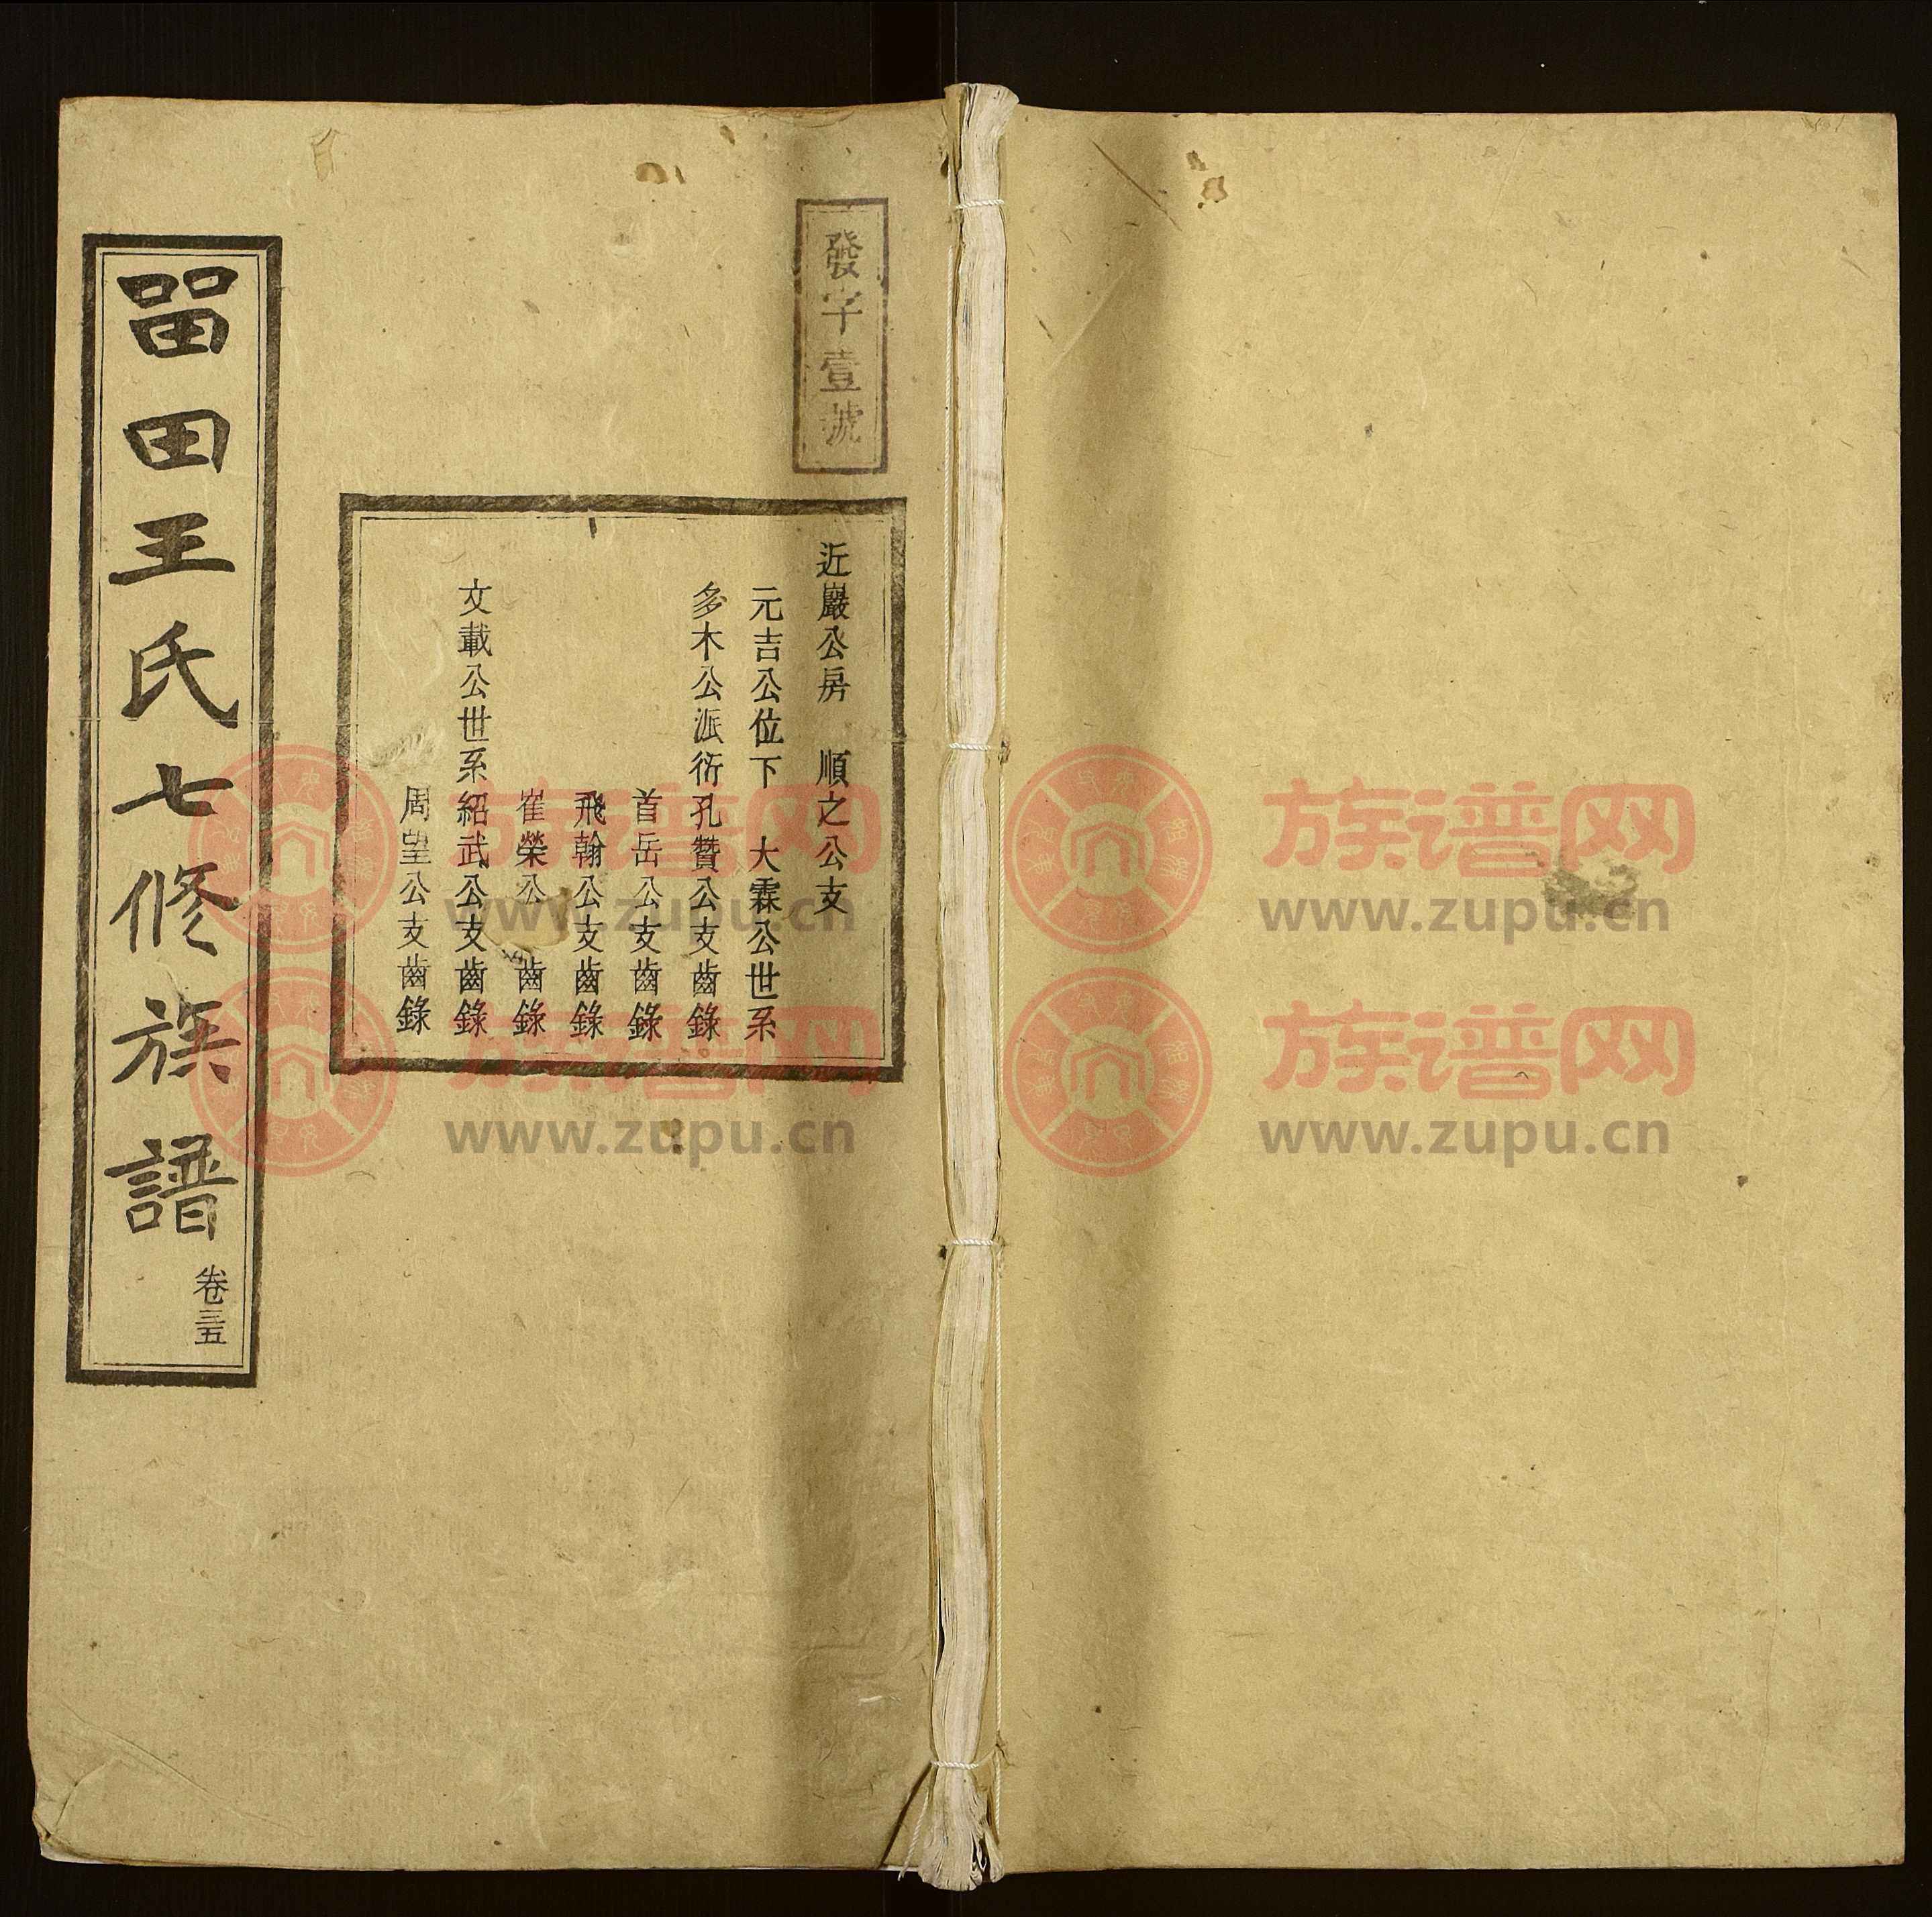 發字壹號
近巖公房 順之公支
元吉公位下 大霖公世系
多木公派衍孔贊公支齒錄
首岳公支齒錄
飛翰公支齒錄
崔榮公 齒錄
文載公世系紹武公支齒錄
周望公支齒錄
畱田王氏七修族譜
卷三五
族谱网
www.zupu.cn
族谱网
www.zupu.cn
族谱网
www.zupu.cn
族谱网
www.zupu.cn